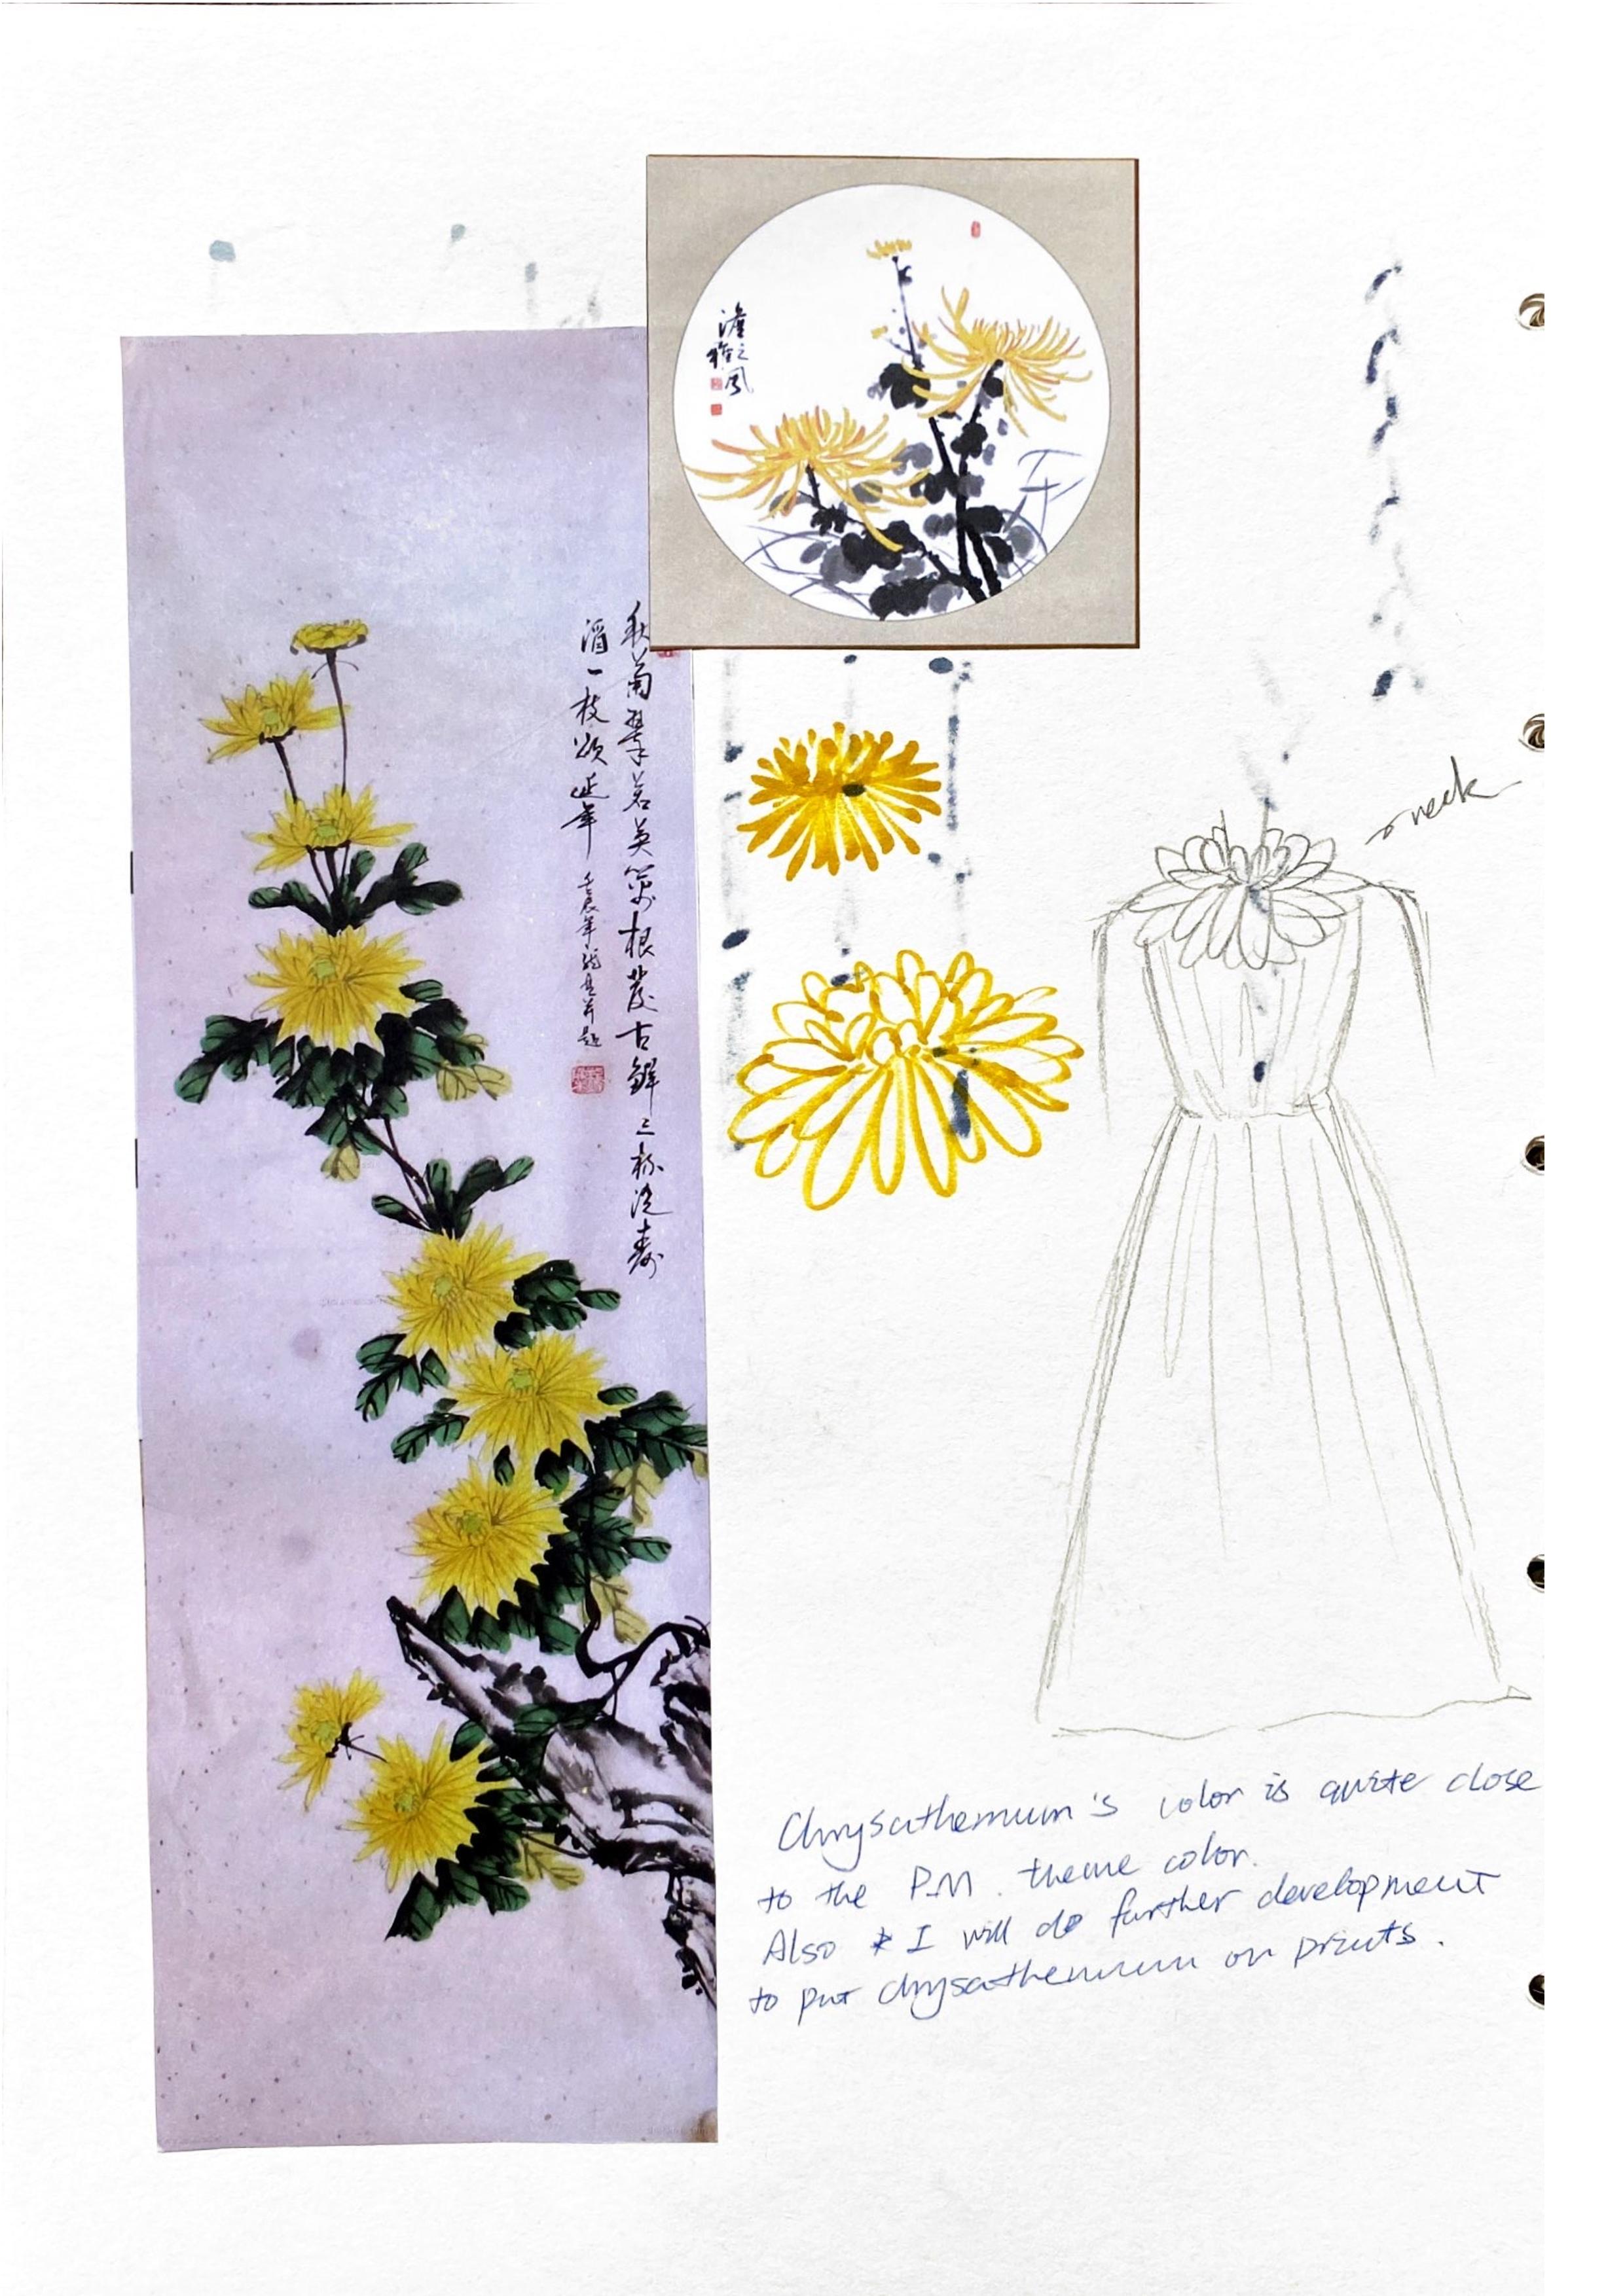 澹之風
雅
秋菊翠茗英
根發古鮮三杯浣壽
酒一枝頌延年
壬辰年
並題
neck
Chrysathemum's color is quite close
to the P.M. theme color.
Also I will do further development
to put chrysathemum on prints.